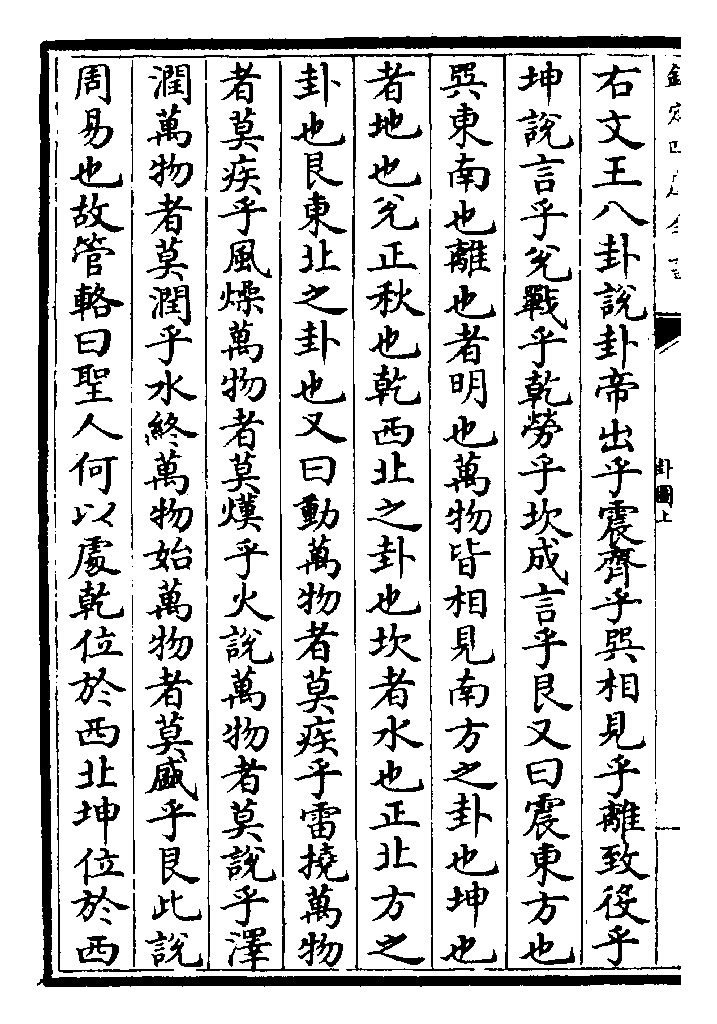 欽定四庫全書
卦圖上
右文王八卦說卦帝出乎震齊乎巽相見乎離致役乎
坤說言乎兊戰乎乾勞乎坎成言乎艮又曰震東方也
巽東南也離也者明也萬物皆相見南方之卦也坤也
者地也兊正秋也乾西北之卦也坎者水也正北方之
卦也艮東北之卦也又曰動萬物者莫疾乎雷撓萬物
者莫疾乎風燥萬物者莫熯乎火說萬物者莫說乎澤
潤萬物者莫潤乎水終萬物始萬物者莫盛乎艮此說
周易也故管輅曰聖人何以處乾位於西北坤位於西